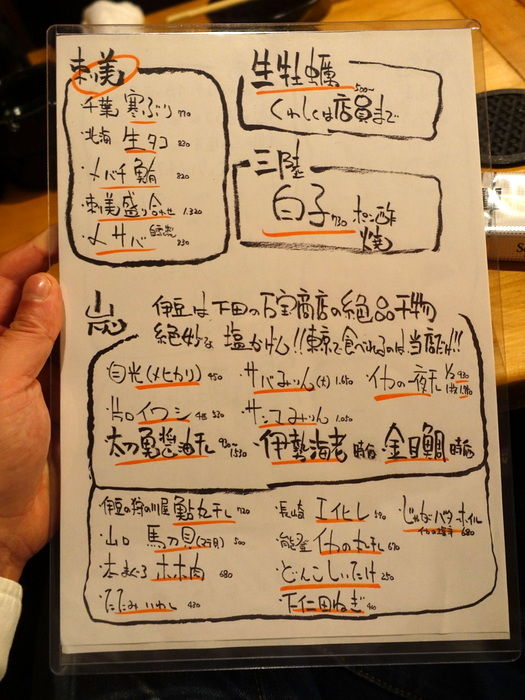 刺美
・千葉 寒ぶり 770
・北海 生タコ 820
・メバチ鮪 820
・刺美盛り合わせ 1.320
・〆サバ 自家製 830
生牡蠣 500〜
くわしくは店員まで
三陸
白子 730 ポン酢
焼
炭
伊豆は下田の石宝商店の絶品干物
絶妙な塩かげん!!東京で食べれるのは当店だけ!!
・目光(メヒカリ) 450
・サバみりん(大) 1.650
・イカの一夜干 1/2 930
1枚 1.780
・片口イワシ 4尾 530
・サンマみりん 1.050
・太刀魚醤油干 930〜1530
・伊勢海老 時価
・金目鯛 時価
・伊豆の狩の川屋 鮎丸干し 720
・長崎 エイヒレ 590
・じゃがバターホイル
イカの塩辛 680
・山口 馬刀貝(2ヶ月) 500
・能登 イカの丸干し 670
・本まぐろ ホホ肉 680
・どんこしいたけ 250
・たたみいわし 430
・下仁田ねぎ 460